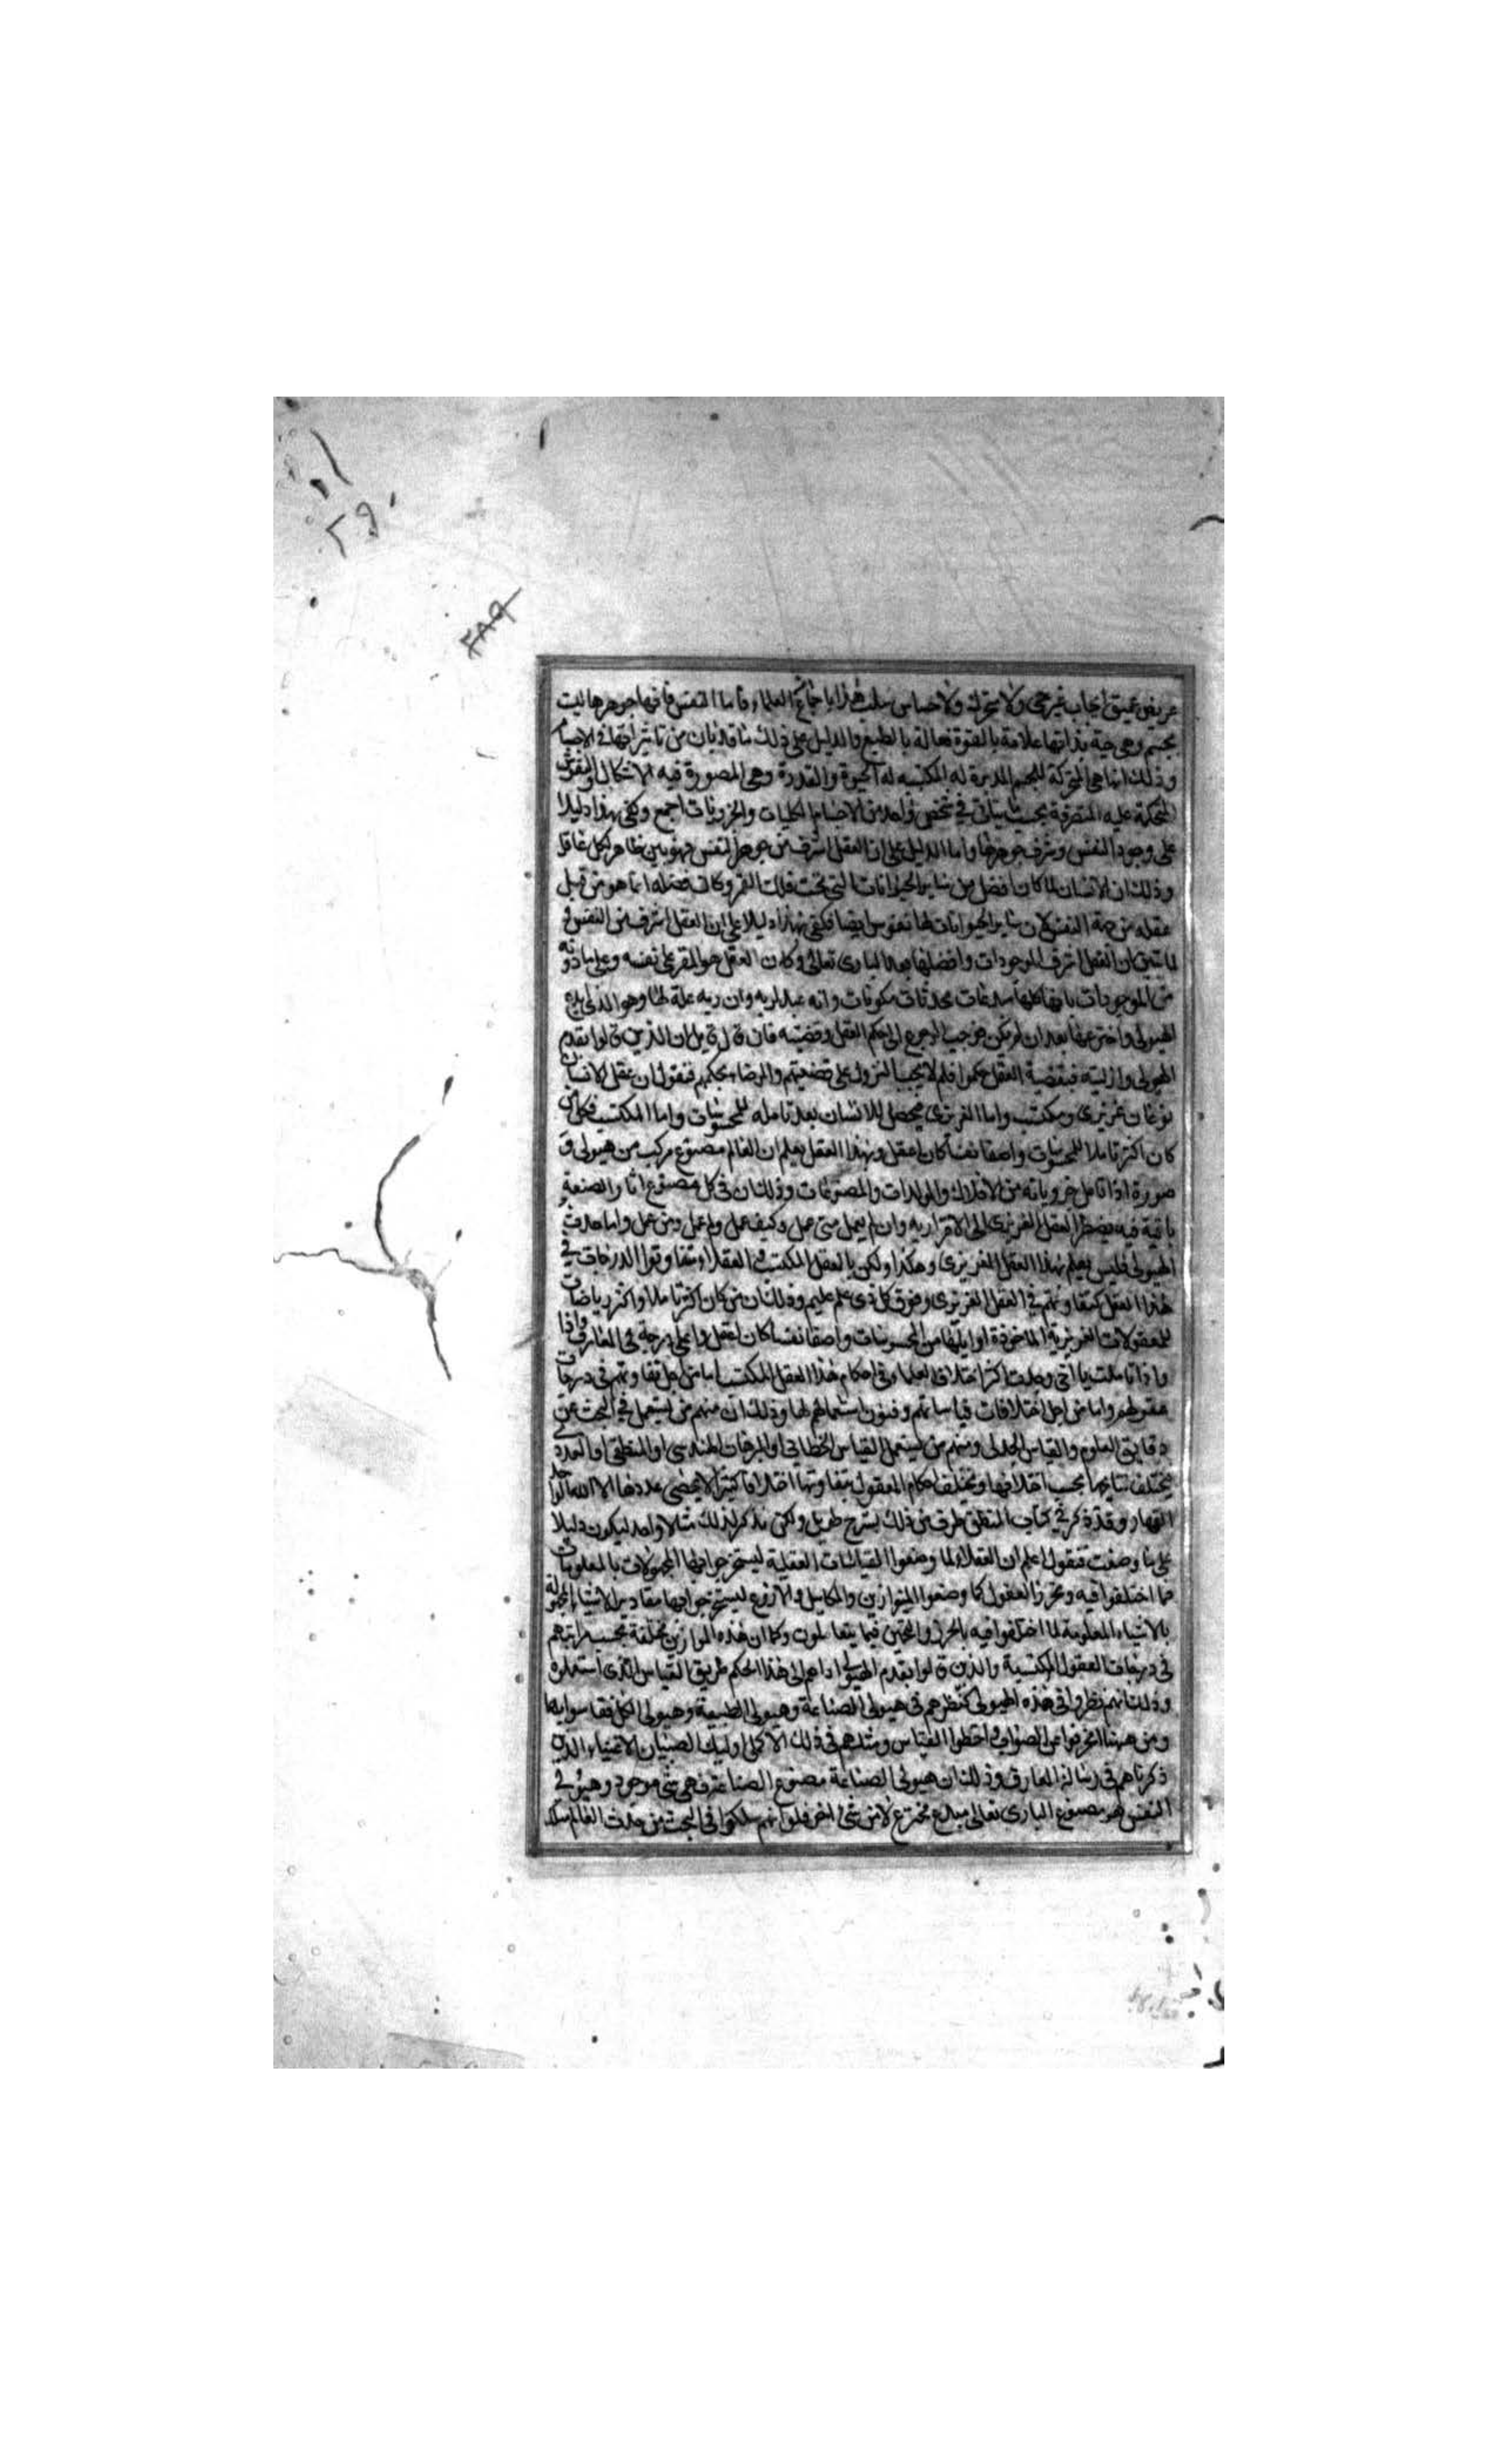 ٢٩٠
٢٨٩
عريض عميق ايجاب غير حي ولا متحرك ولا حساس سلب هذا باجماع العلماء فاما النفس فانها جوهرها ليست
بجسم وهي حية بذاتها علامة بالقوة فعالة بالطبع والدليل على ذلك ما قد بان من تاثيراتها في الاجسام
وذلك انها هي المحركة للجسم المدبرة له المكتسبه له الحيوة والقدرة وهي المصورة فيه الاشكال والنقوش
المتحكمة عليه المتصرفة بحسب ما يتاتى في شخص واحد من الاجسام الكليات والجزويات اجمع وكفى بهذا دليلا
على وجود النفس وشرف جوهرها واما الدليل على ان العقل اشرف من جوهر النفس فهو بين ظاهر لكل عاقل
وذلك ان الانسان لما كان افضل من ساير الحيوانات التي تحت فلك القمر وكانت فضله انما هو من قبل
عقله من جهة النفس لان ساير الحيوانات لها نفوس ايضا فكفى بهذا دليلا على ان العقل اشرف من النفس و
لما تبين ان العقل اشرف الموجودات وافضلها بعد البارى تعالى وكان العقل هو المقر على نفسه وعلى ما دونه
من الموجودات بانها كلها مبدعات محدثات مكونات وانه عبد لربه وان ربه علة لها وهو الذي ابدع
الهيولى واخترعها بعد ان لم تكن فوجب الرجوع الى حكم العقل وقضيته فان قال قايل ان الذين قالوا بقدم
الهيولى وازليته فبقضية العقل حكموا فلم لا يجب النزول على قضيتهم والرضاء بحكمهم فنقول ان عقل الانسان
نوعان غريزى ومكتسب واما الغريزى فيحصل للانسان بعد تامله للمحسوسات واما المكتسب فكل من
كان اكثر تاملا للمحسوسات واصفا نفسا كان اعقل وبهذا العقل يعلم ان العالم مصنوع مركب من هيولى و
صورة اذا تامل جزوياته من الافلاك والمولدات والمصنوعات وذلك ان في كل مصنوع اثار الصنعة
باقية فيه يضطر العقل الغريزى الى الاقرار به وان لم يعمل متى عمل وكيف عمل ولم عمل ومن عمل واما حدث
الهيولى فليس يعلم بهذا العقل الغريزى وهكذا ولكن بالعقل المكتسب والعقلاء متفاوتوا الدرجات في
هذا العقل كتفاوتهم في العقل الغريزى وفوق كل ذى علم عليم وذلك ان من كان اكثر تاملا واكثر رياضات
للمعقولات الغريزية الماخوذة اوايلها من المحسوسات واصفا نفسا كان اعقل واعلى درجة في المعارف واذا
واذا تاملت يا اخي وجدت اكثر اختلاف العلماء في احكام هذا العقل المكتسب اما من اجل تفاوتهم في درجات
عقولهم واما من اجل اختلافات قياساتهم وفنون استعمالهم لها وذلك ان منهم من يستعمل في البحث عن
دقايق العلوم والقياس الجدلى ومنهم من يستعمل القياس الخطابي او البرهان الهندسى او المنطقى او العددى
يختلف نتايجها بحسب اختلافها ويختلف احكام العقول بتفاوتها اختلافا كثيرا لا يحصى عددها الا الله الواحد
القهار وقد ذكر في كتاب المنطق طرف من ذلك بشرح طويل ولكن نذكر لذلك مثالا واحد ليكون دليلا
على ما وصفت فنقول اعلم ان العقلاء لما وضعوا القياسات العقلية ليستخرجوا بها المجهولات بالمعلومات
مما اختلفوا فيه وتحرز العقول كما وضعوا الموازين والمكاييل والاذرع ليستخرجوا بها مقادير الاشياء المجهولة
بالاشياء المعلومة لما اختلفوا فيه بالحرز والتخمين فيما يتعاملون وكما ان هذه الموازين مختلفة بحسب مراتبهم
في درجات العقول المكتسبة والذين قالوا بقدم الهيولى اداهم الى هذا الحكم طريق القياس الذى استعملوه
وذلك انهم نظروا في هذه الهيولى كنظرهم في هيولى الصناعة وهيولى الطبيعة وهيولى الكل فقاسوا بها
ومن ههنا انحرفوا عن الصواب واخطوا القياس ومثلهم في ذلك الا كمثل اوليك الصبيان الاغنياء الذين
ذكرناهم في رسالة المعارف وذلك ان هيولى الصناعة مصنوع الصناعة فهي شى موجود وهيولى
النفس هو مصنوع البارى تعالى مبدع مخترع لا من شئ اخر فلو انهم سلكوا في البحث من حدث العالم مسلك